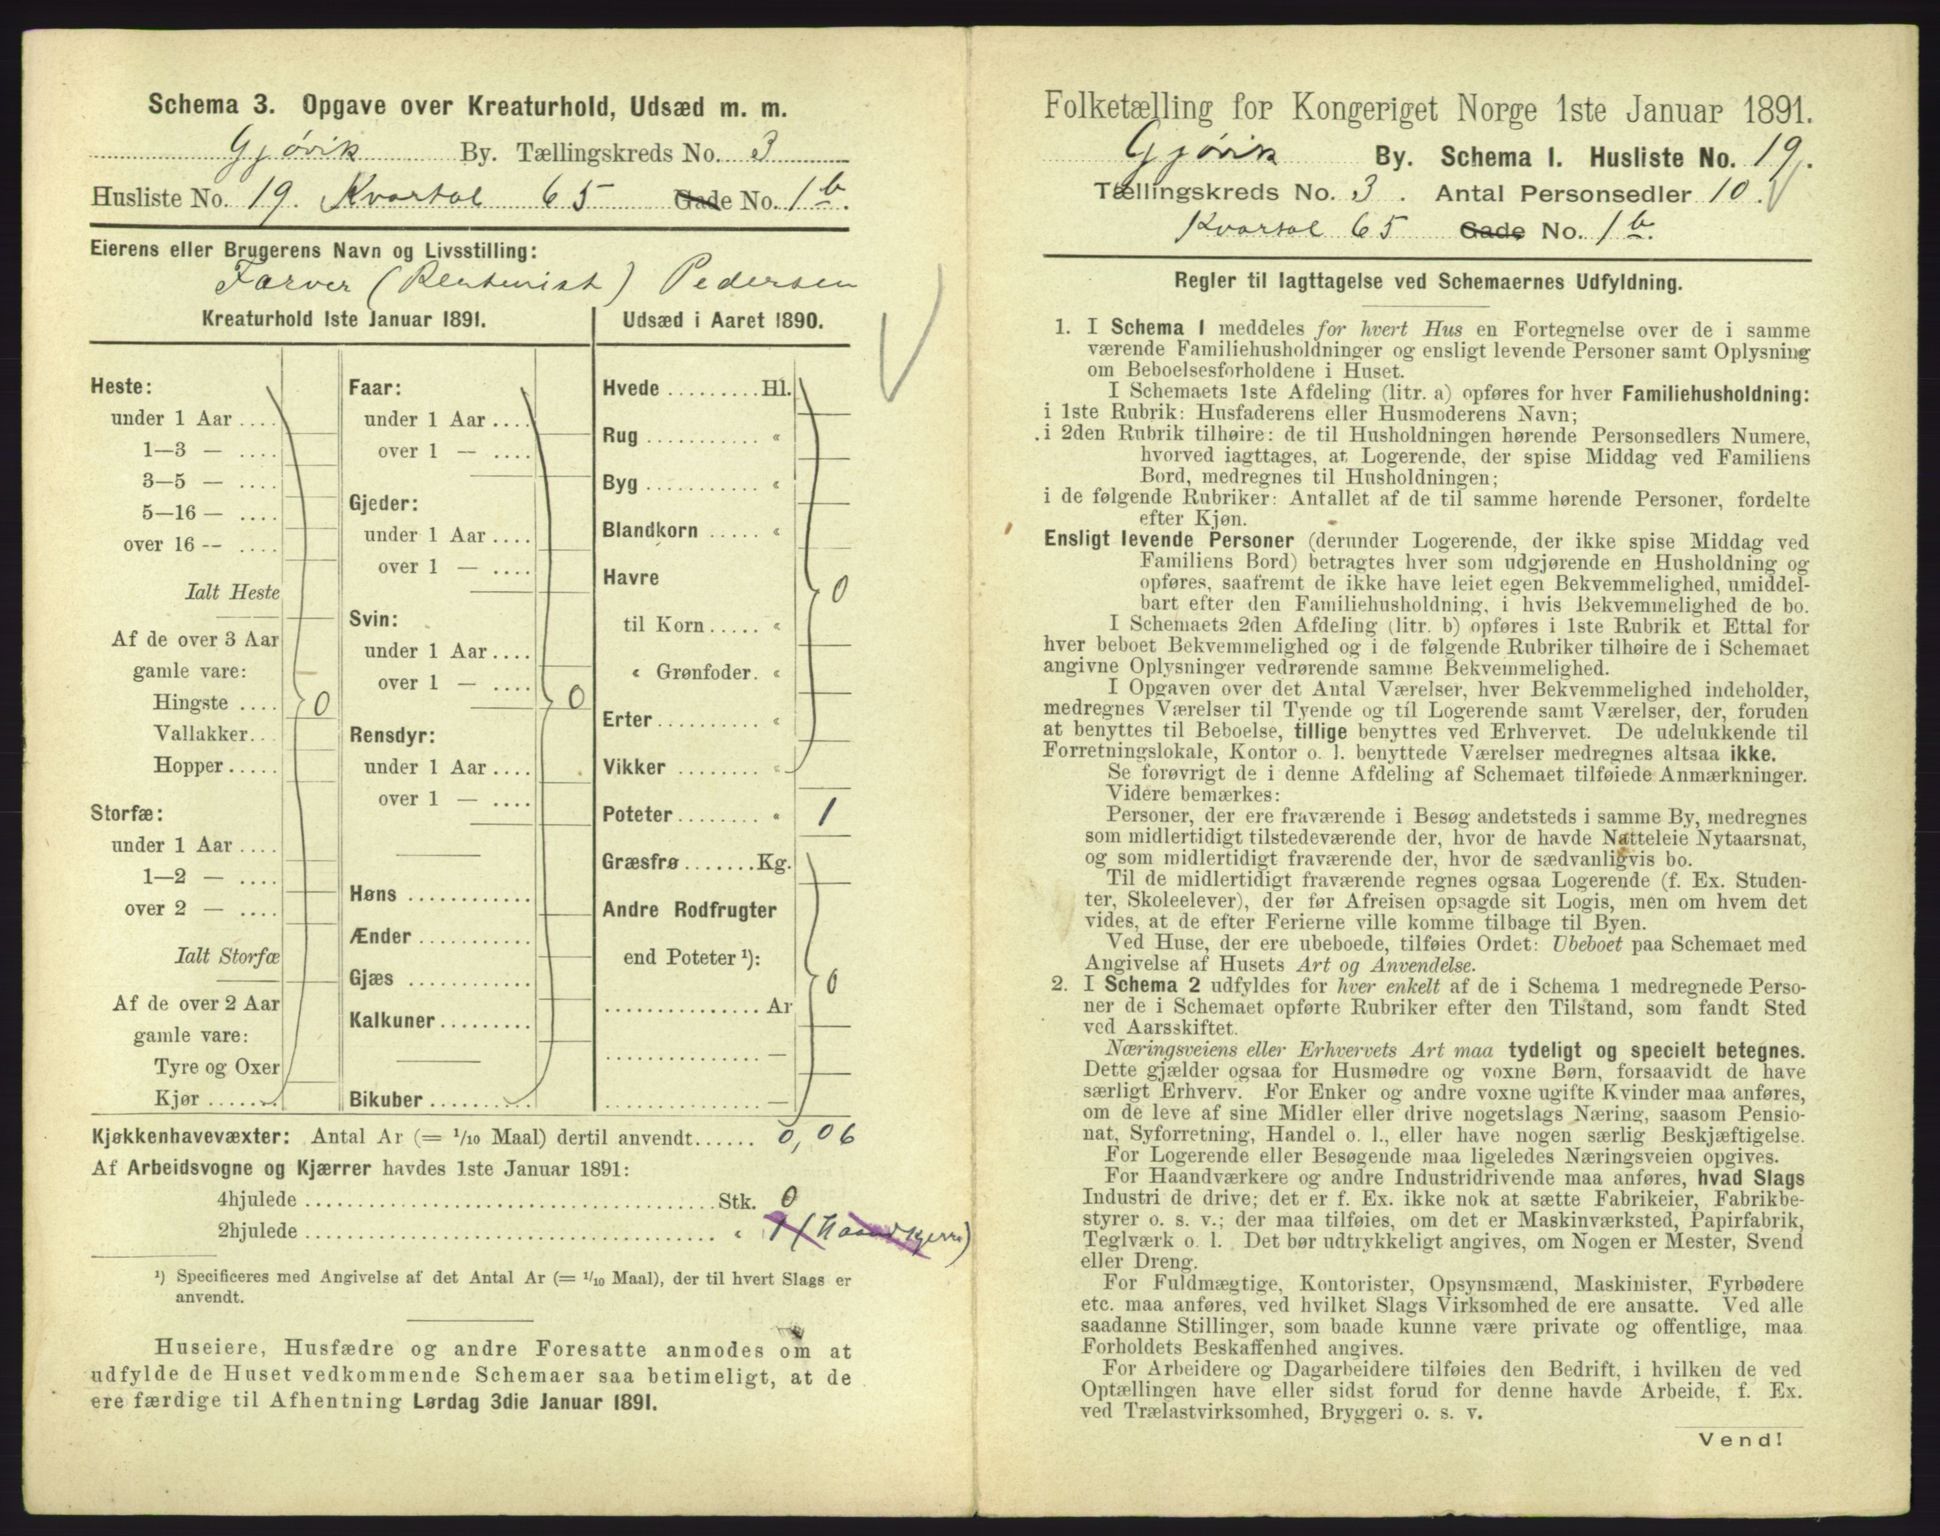 Schema 3. Opgave over Kreaturhold, Udsæd m. m.
Gjøvik By. Tællingskreds No. 3
Husliste No. 19. Kvartal 65 Gade No. 1b.
Eierens eller Brugerens Navn og Livsstilling:
Farver (Rentenist) Pedersen
Kreaturhold 1ste Januar 1891.
Heste:
under 1 Aar ....
1—3 — ....
3—5 — ....
5—16 — ....
over 16 -- ....
Ialt Heste
Af de over 3 Aar
gamle vare:
Hingste .... 0
Vallakker..
Hopper.....
Storfæ:
under 1 Aar ....
1—2 — ....
over 2 — ....
Ialt Storfæ
Af de over 2 Aar
gamle vare:
Tyre og Oxer
Kjør .......
Faar:
under 1 Aar ....
over 1 — ....
Gjeder:
under 1 Aar ....
over 1 — ....
Svin:
under 1 Aar ....
over 1 — .... 0
Rensdyr:
under 1 Aar ....
over 1 — ....
Høns ............
Ænder ...........
Gjæs ............
Kalkuner.........
Bikuber..........
Udsæd i Aaret 1890.
Hvede ......... Hl.
Rug ........... «
Byg ........... «
Blandkorn ..... «
Havre 0
til Korn ..... «
« Grønfoder. «
Erter.......... «
Vikker ........ «
Poteter........ « 1
Græsfrø .......Kg.
Andre Rodfrugter
end Poteter ¹): 0
............... Ar
............... —
............... —
Kjøkkenhavevæxter: Antal Ar (= 1/10 Maal) dertil anvendt...... 0,06
Af Arbeidsvogne og Kjærrer havdes 1ste Januar 1891:
4hjulede ........................................ Stk. 0
2hjulede ........................................ « 1 (Haandkjerre)
¹) Specificeres med Angivelse af det Antal Ar (= 1/10 Maal), der til hvert Slags er
anvendt.
Huseiere, Husfædre og andre Foresatte anmodes om at
udfylde de Huset vedkommende Schemaer saa betimeligt, at de
ere færdige til Afhentning Lørdag 3die Januar 1891.
Folketælling for Kongeriget Norge 1ste Januar 1891.
Gjøvik By. Schema 1. Husliste No. 19.
Tællingskreds No. 3. Antal Personsedler 10.
Kvartal 65 Gade No. 1b.
Regler til Iagttagelse ved Schemaernes Udfyldning.
1. I Schema 1 meddeles for hvert Hus en Fortegnelse over de i samme
værende Familiehusholdninger og ensligt levende Personer samt Oplysning
om Beboelsesforholdene i Huset.
I Schemaets 1ste Afdeling (litr. a) opføres for hver Familiehusholdning:
i 1ste Rubrik: Husfaderens eller Husmoderens Navn;
i 2den Rubrik tilhøire: de til Husholdningen hørende Personsedlers Numere,
hvorved iagttages, at Logerende, der spise Middag ved Familiens
Bord, medregnes til Husholdningen;
i de følgende Rubriker: Antallet af de til samme hørende Personer, fordelte
efter Kjøn.
Ensligt levende Personer (derunder Logerende, der ikke spise Middag ved
Familiens Bord) betragtes hver som udgjørende en Husholdning og
opføres, saafremt de ikke have leiet egen Bekvemmelighed, umiddel-
bart efter den Familiehusholdning, i hvis Bekvemmelighed de bo.
I Schemaets 2den Afdeling (litr. b) opføres i 1ste Rubrik et Ettal for
hver beboet Bekvemmelighed og i de følgende Rubriker tilhøire de i Schemaet
angivne Oplysninger vedrørende samme Bekvemmelighed.
I Opgaven over det Antal Værelser, hver Bekvemmelighed indeholder,
medregnes Værelser til Tyende og til Logerende samt Værelser, der, foruden
at benyttes til Beboelse, tillige benyttes ved Erhvervet. De udelukkende til
Forretningslokale, Kontor o. l. benyttede Værelser medregnes altsaa ikke.
Se forøvrigt de i denne Afdeling af Schemaet tilføiede Anmærkninger.
Videre bemærkes:
Personer, der ere fraværende i Besøg andetsteds i samme By, medregnes
som midlertidigt tilstedeværende der, hvor de havde Natteleie Nytaarsnat,
og som midlertidigt fraværende der, hvor de sædvanligvis bo.
Til de midlertidigt fraværende regnes ogsaa Logerende (f. Ex. Studen-
ter, Skoleelever), der før Afreisen opsagde sit Logis, men om hvem det
vides, at de efter Ferierne ville komme tilbage til Byen.
Ved Huse, der ere ubeboede, tilføies Ordet: Ubeboet paa Schemaet med
Angivelse af Husets Art og Anvendelse.
2. I Schema 2 udfyldes for hver enkelt af de i Schema 1 medregnede Perso-
ner de i Schemaet opførte Rubriker efter den Tilstand, som fandt Sted
ved Aarsskiftet.
Næringsveiens eller Erhvervets Art maa tydeligt og specielt betegnes.
Dette gjælder ogsaa for Husmødre og voxne Børn, forsaavidt de have
særligt Erhverv. For Enker og andre voxne ugifte Kvinder maa anføres,
om de leve af sine Midler eller drive nogetslags Næring, saasom Pensio-
nat, Syforretning, Handel o. l., eller have nogen særlig Beskjæftigelse.
For Logerende eller Besøgende maa ligeledes Næringsveien opgives.
For Haandværkere og andre Industridrivende maa anføres, hvad Slags
Industri de drive; det er f. Ex. ikke nok at sætte Fabrikeier, Fabrikbe-
styrer o. s. v.; der maa tilføies, om det er Maskinværksted, Papirfabrik,
Teglværk o. l. Det bør udtrykkeligt angives, om Nogen er Mester, Svend
eller Dreng.
For Fuldmægtige, Kontorister, Opsynsmænd, Maskinister, Fyrbødere
etc. maa anføres, ved hvilket Slags Virksomhed de ere ansatte. Ved alle
saadanne Stillinger, som baade kunne være private og offentlige, maa
Forholdets Beskaffenhed angives.
For Arbeidere og Dagarbeidere tilføies den Bedrift, i hvilken de ved
Optællingen have eller sidst forud for denne havde Arbeide, f. Ex.
ved Trælastvirksomhed, Bryggeri o. s. v.
Vend!